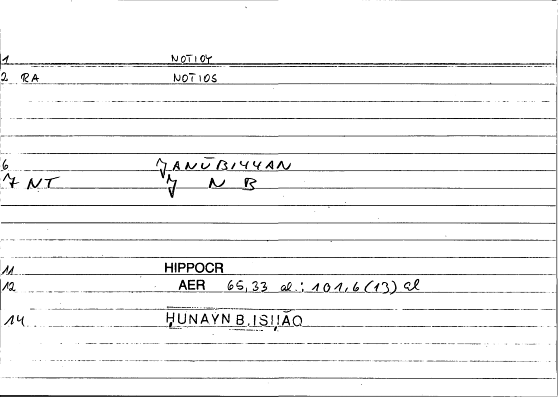 1 NOTIOY
2 RA NOTIOS
6 ǦANŪBIYYAN
7 NT Ǧ N B
11 HIPPOCR
12 AER 65,33 al.: 101,6 (13) al
14 ḤUNAYN B. ISḤĀQ